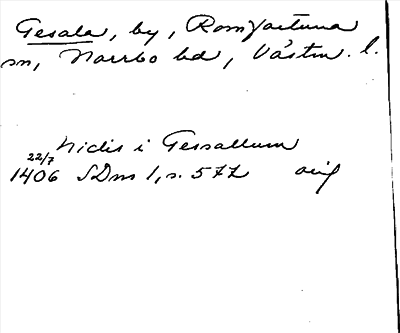 Gesala, by, Romfartuna
sn, Norrbo hd, Västm. l.
Nidis i Gessallum
22/7
1406 SDns 1, s. 577 orig